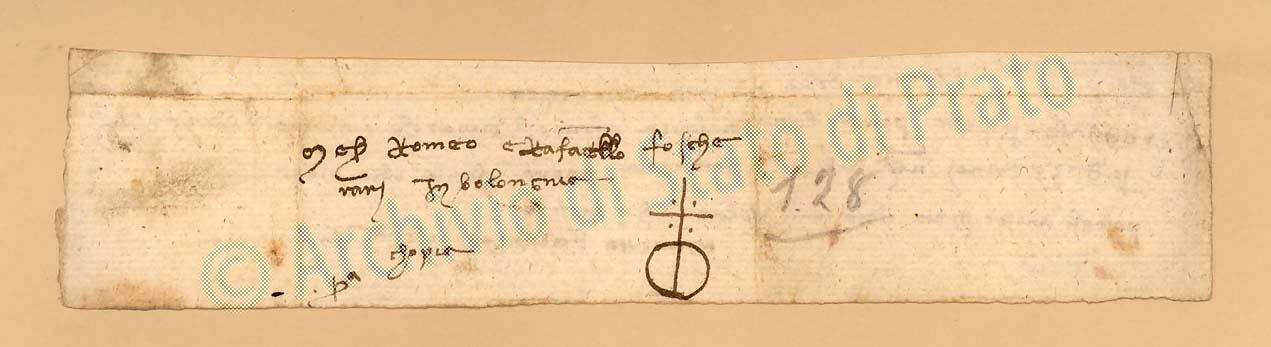 Romeo e Rafaello fosche
rari In bolongnia
128
chopia
pa
© Archivio di Stato di Prato